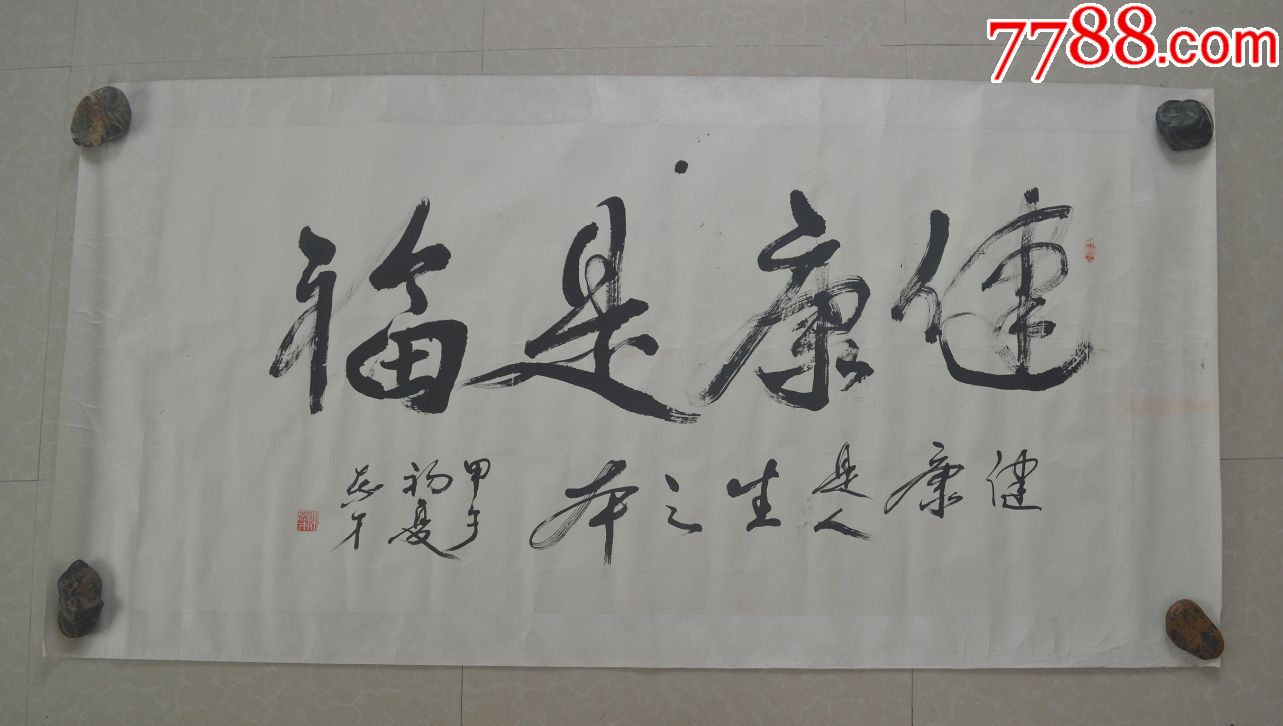 7788.com
健康是福
健康是人生之本
甲子
初夏
志才